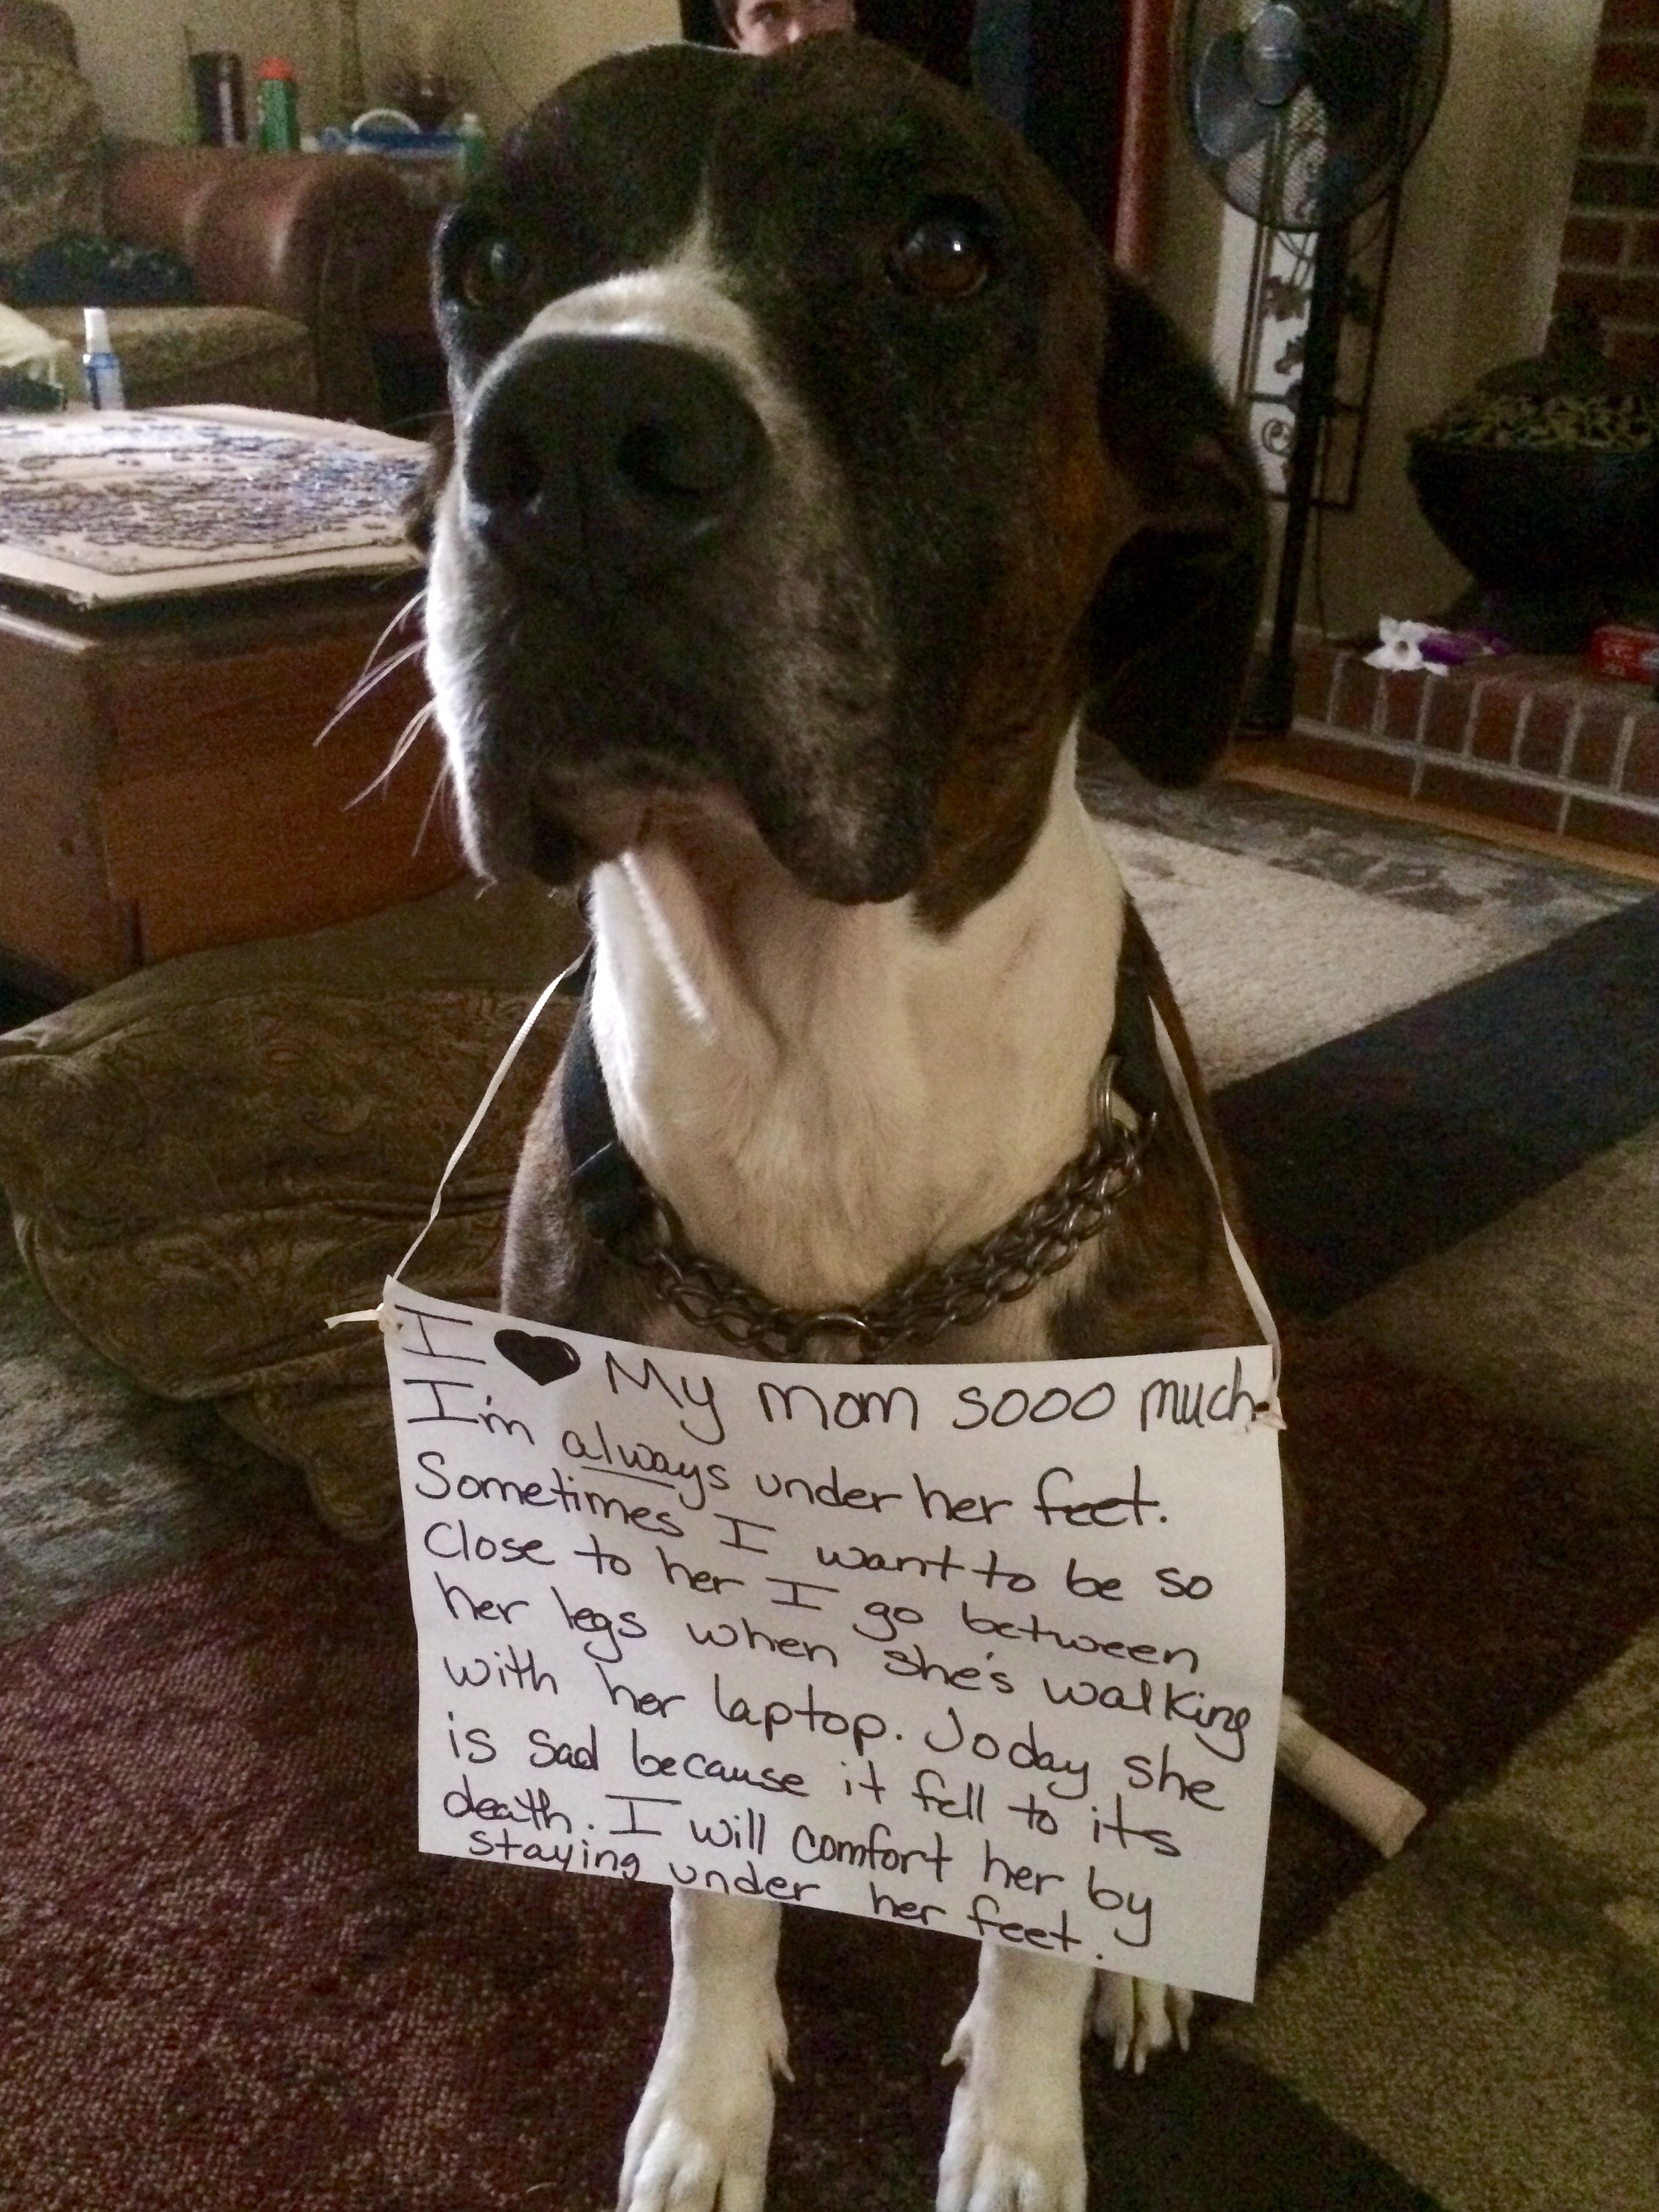 I ♥ My mom sooo much.
I'm always under her feet.
Sometimes I want to be so
close to her I go between
her legs when she's walking
with her laptop. Today she
is sad because it fell to its
death. I will comfort her by
staying under her feet.